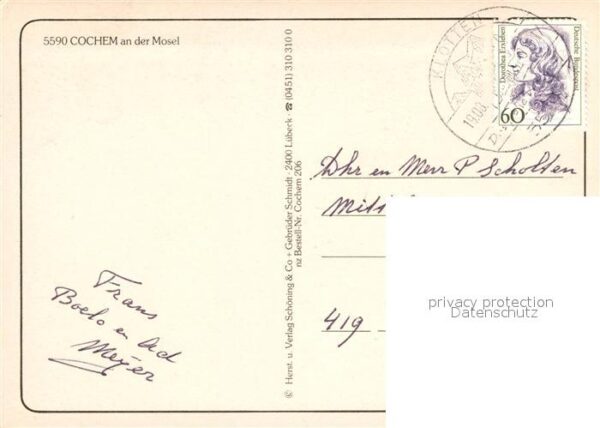 5590 COCHEM an der Mosel
Frans
Meyer
© Herst. u. Verlag Schöning & Co + Gebrüder Schmidt · 2400 Lübeck · ☎ (0451) 310 310 0
nz Bestell-Nr. Cochem 206
KLOTTEN
19.08.
Dorothea Erxleben
Deutsche Bundespost
60
Dhr en Mevr P Scholten
419
privacy protection
Datenschutz